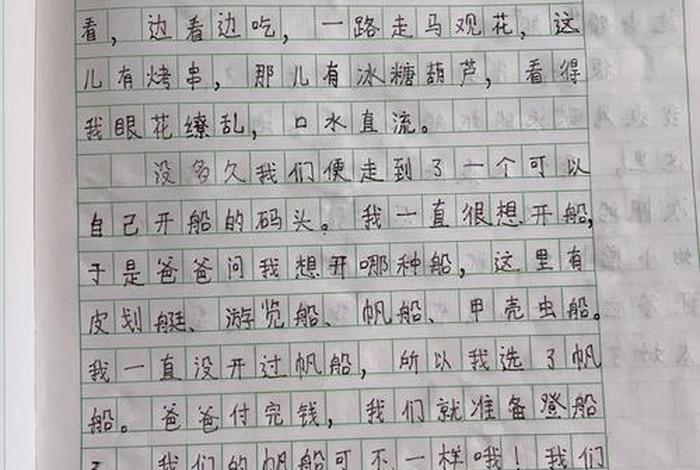 看，边看边吃，一路走马观花，这
儿有烤串，那儿有冰糖葫芦，看得
我眼花缭乱，口水直流。
没多久我们便走到了一个可以
自己开船的码头。我一直很想开船，
于是爸爸问我想开哪种船，这里有
皮划艇、游览船、帆船、甲壳虫船。
我一直没开过帆船，所以我选了帆
船。爸爸付完钱，我们就准备登船
了，我们的帆船可不一样哦！我们